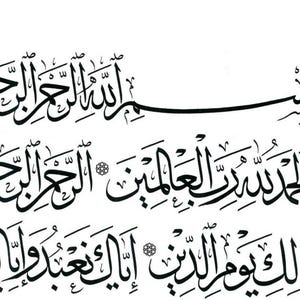 سْمِ ٱللَّهِ ٱلرَّحْمَٰنِ ٱلرَّحِ
لْحَمْدُ لِلَّهِ رَبِّ ٱلْعَٰلَمِينَ ۞ ٱلرَّحْمَٰنِ ٱلرَّحِ
لِكِ يَوْمِ ٱلدِّينِ ۞ إِيَّاكَ نَعْبُدُ وَإِيَّا